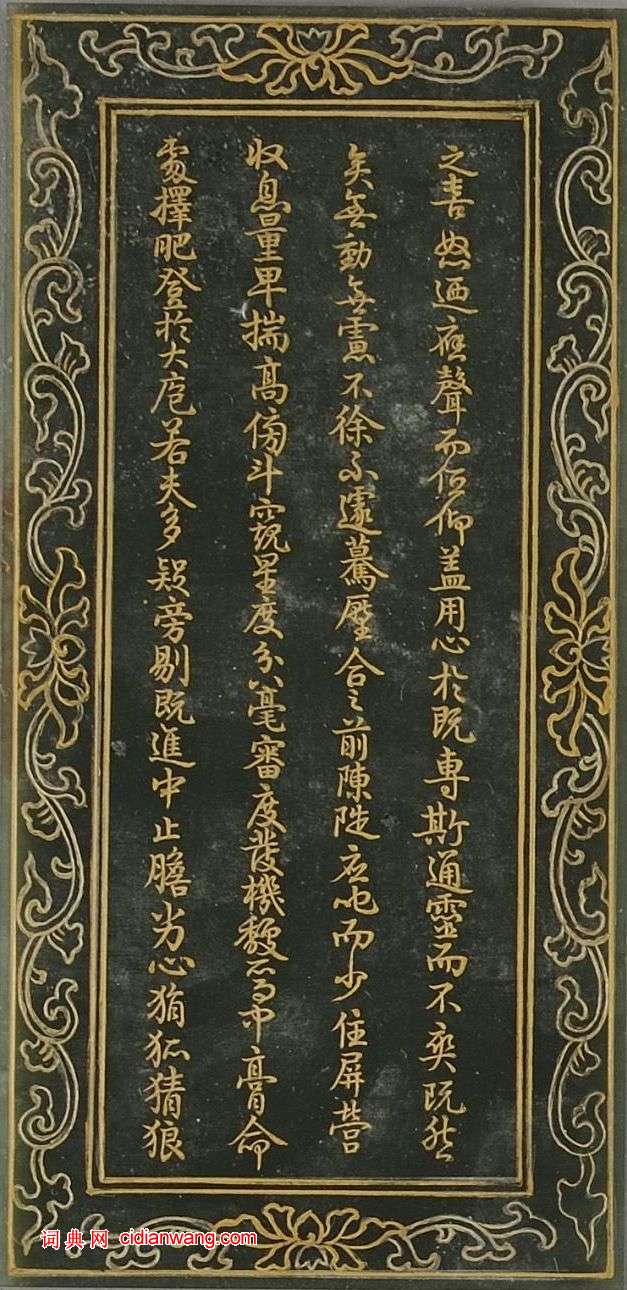 之喜怒迺應聲而俯仰盖用心於既專斯通靈而不爽既然
矣無動無慮不徐不遽驀壓合之前陳陡应叱而少住屏營
收息量卑揣高傍斗窺星度分毫審度發機中膏命
處擇肥登於大庖若夫多疑旁剔既進中止膽劣心狷狐猜狼
词典网 cidianwang.com